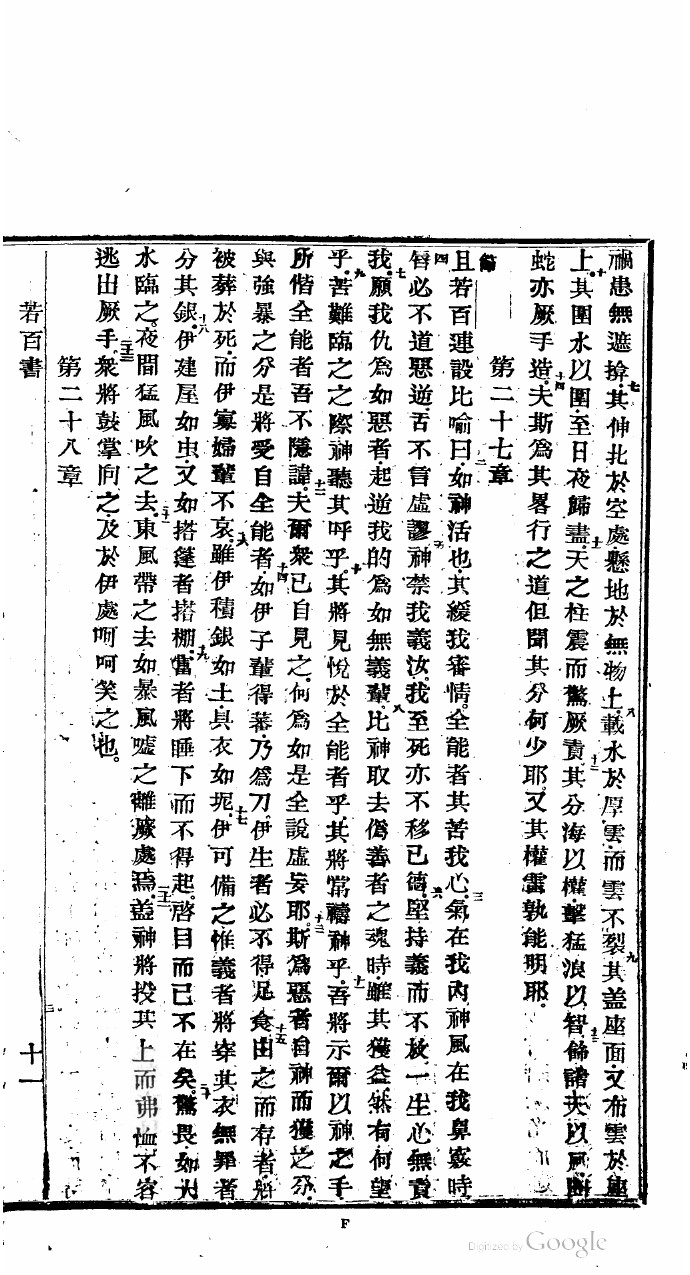 禍患無遮揜其伸北於空處懸地於無物上載水於厚雲而雲不裂其盖座面又布雲於座
上其圍水以圍至日夜歸盡天之柱震而驚厥責其分海以權擊猛浪以智飾諸天以厥
蛇亦厥手造夫斯為其畧行之道但聞其分何少耶又其權雷孰能明耶
第二十七章
節
且若百連設比喻曰如神活也其緩我審情全能者其苦我心氣在我內神風在我鼻竅時
唇必不道惡逆舌不言虛謬神禁我義汝我至死亦不移已德堅持義而不放一生心無責
我願我仇為如惡者起逆我的為如無義輩比神取去偽善者之魂時雖其獲益然有何望
乎苦難臨之之際神聽其呼乎其將見悅於全能者乎其將常禱神乎吾將示爾以神之手
所偕全能者吾不隱諱夫爾衆已自見之何為如是全說虛妄耶斯為惡者自神而獲之分
與強暴之分是將受自全能者如伊子輩得蕃乃為刀伊生者必不得足食由之而存者
被葬於死而伊寡婦輩不哀雖伊積銀如土具衣如坭伊可備之惟義者將穿其衣無罪者
分其銀伊建屋如虫又如搭篷者搭棚富者將睡下而不得起啓目而已不在矣驚畏如大
水臨之夜間猛風吹之去東風帶之去如暴風噓之離厥處焉盖神將投其上而弗恤不容
逃出厥手衆將鼓掌向之及於伊處呵呵笑之也
第二十八章
若百書
十一
F
Digitized by Google